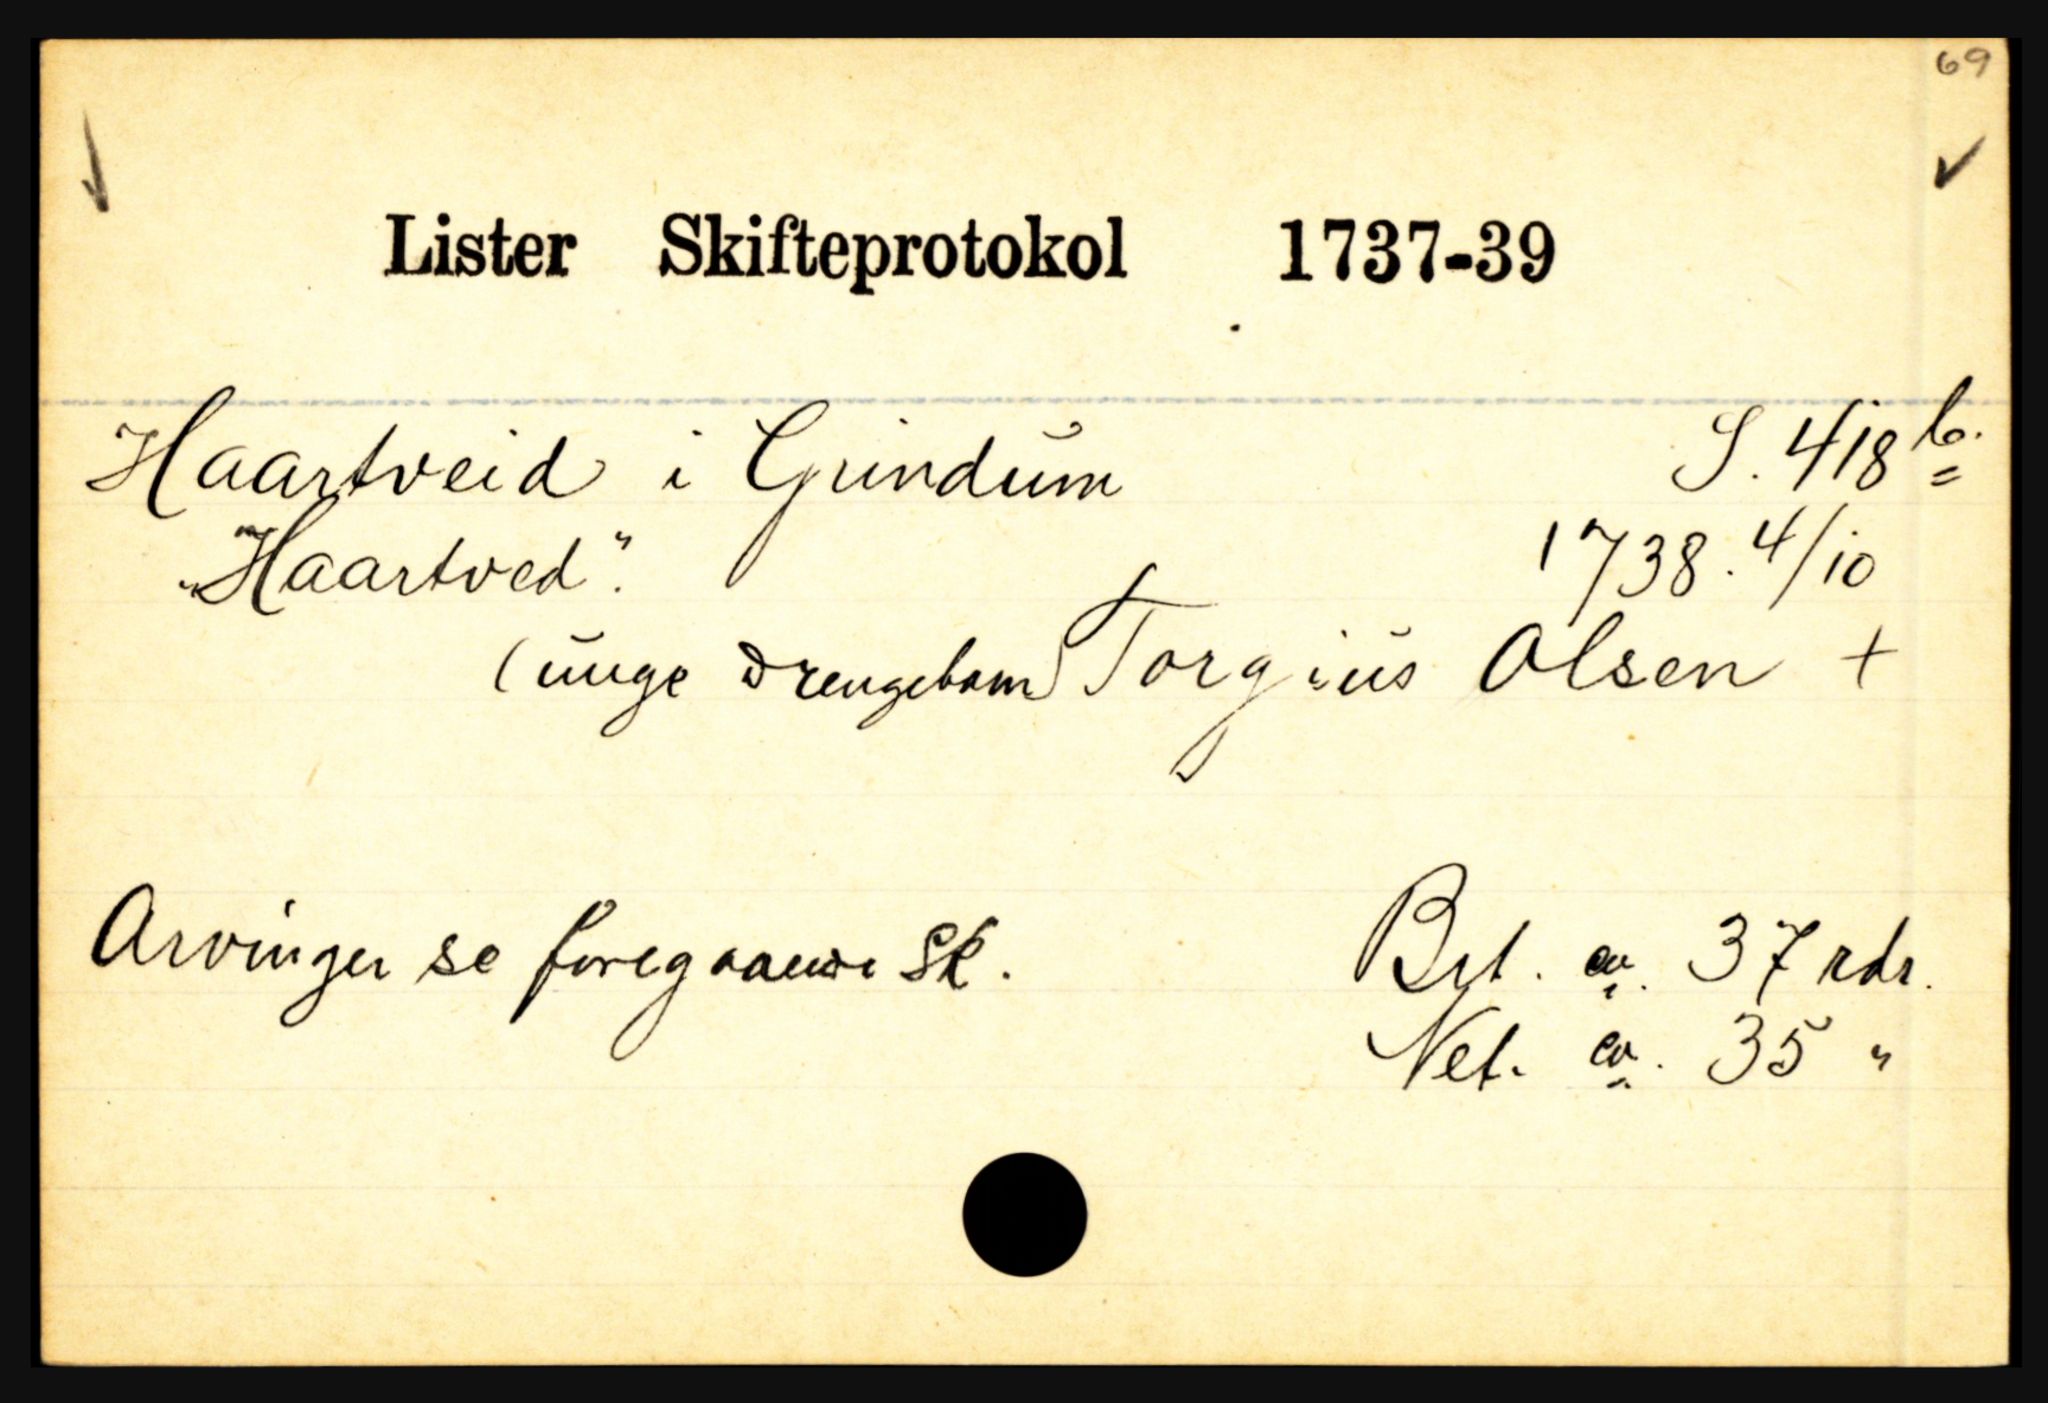 69
Lister Skifteprotokol 1737-39
Haartveid i Grindum S. 418 b.
"Haartved". 1738. 4/10
(unge Drengebarn) Torgius Olsen +
Arvinger se foregaaende Sk. Brt. ca. 37 rdr.
Net. ca. 35 "